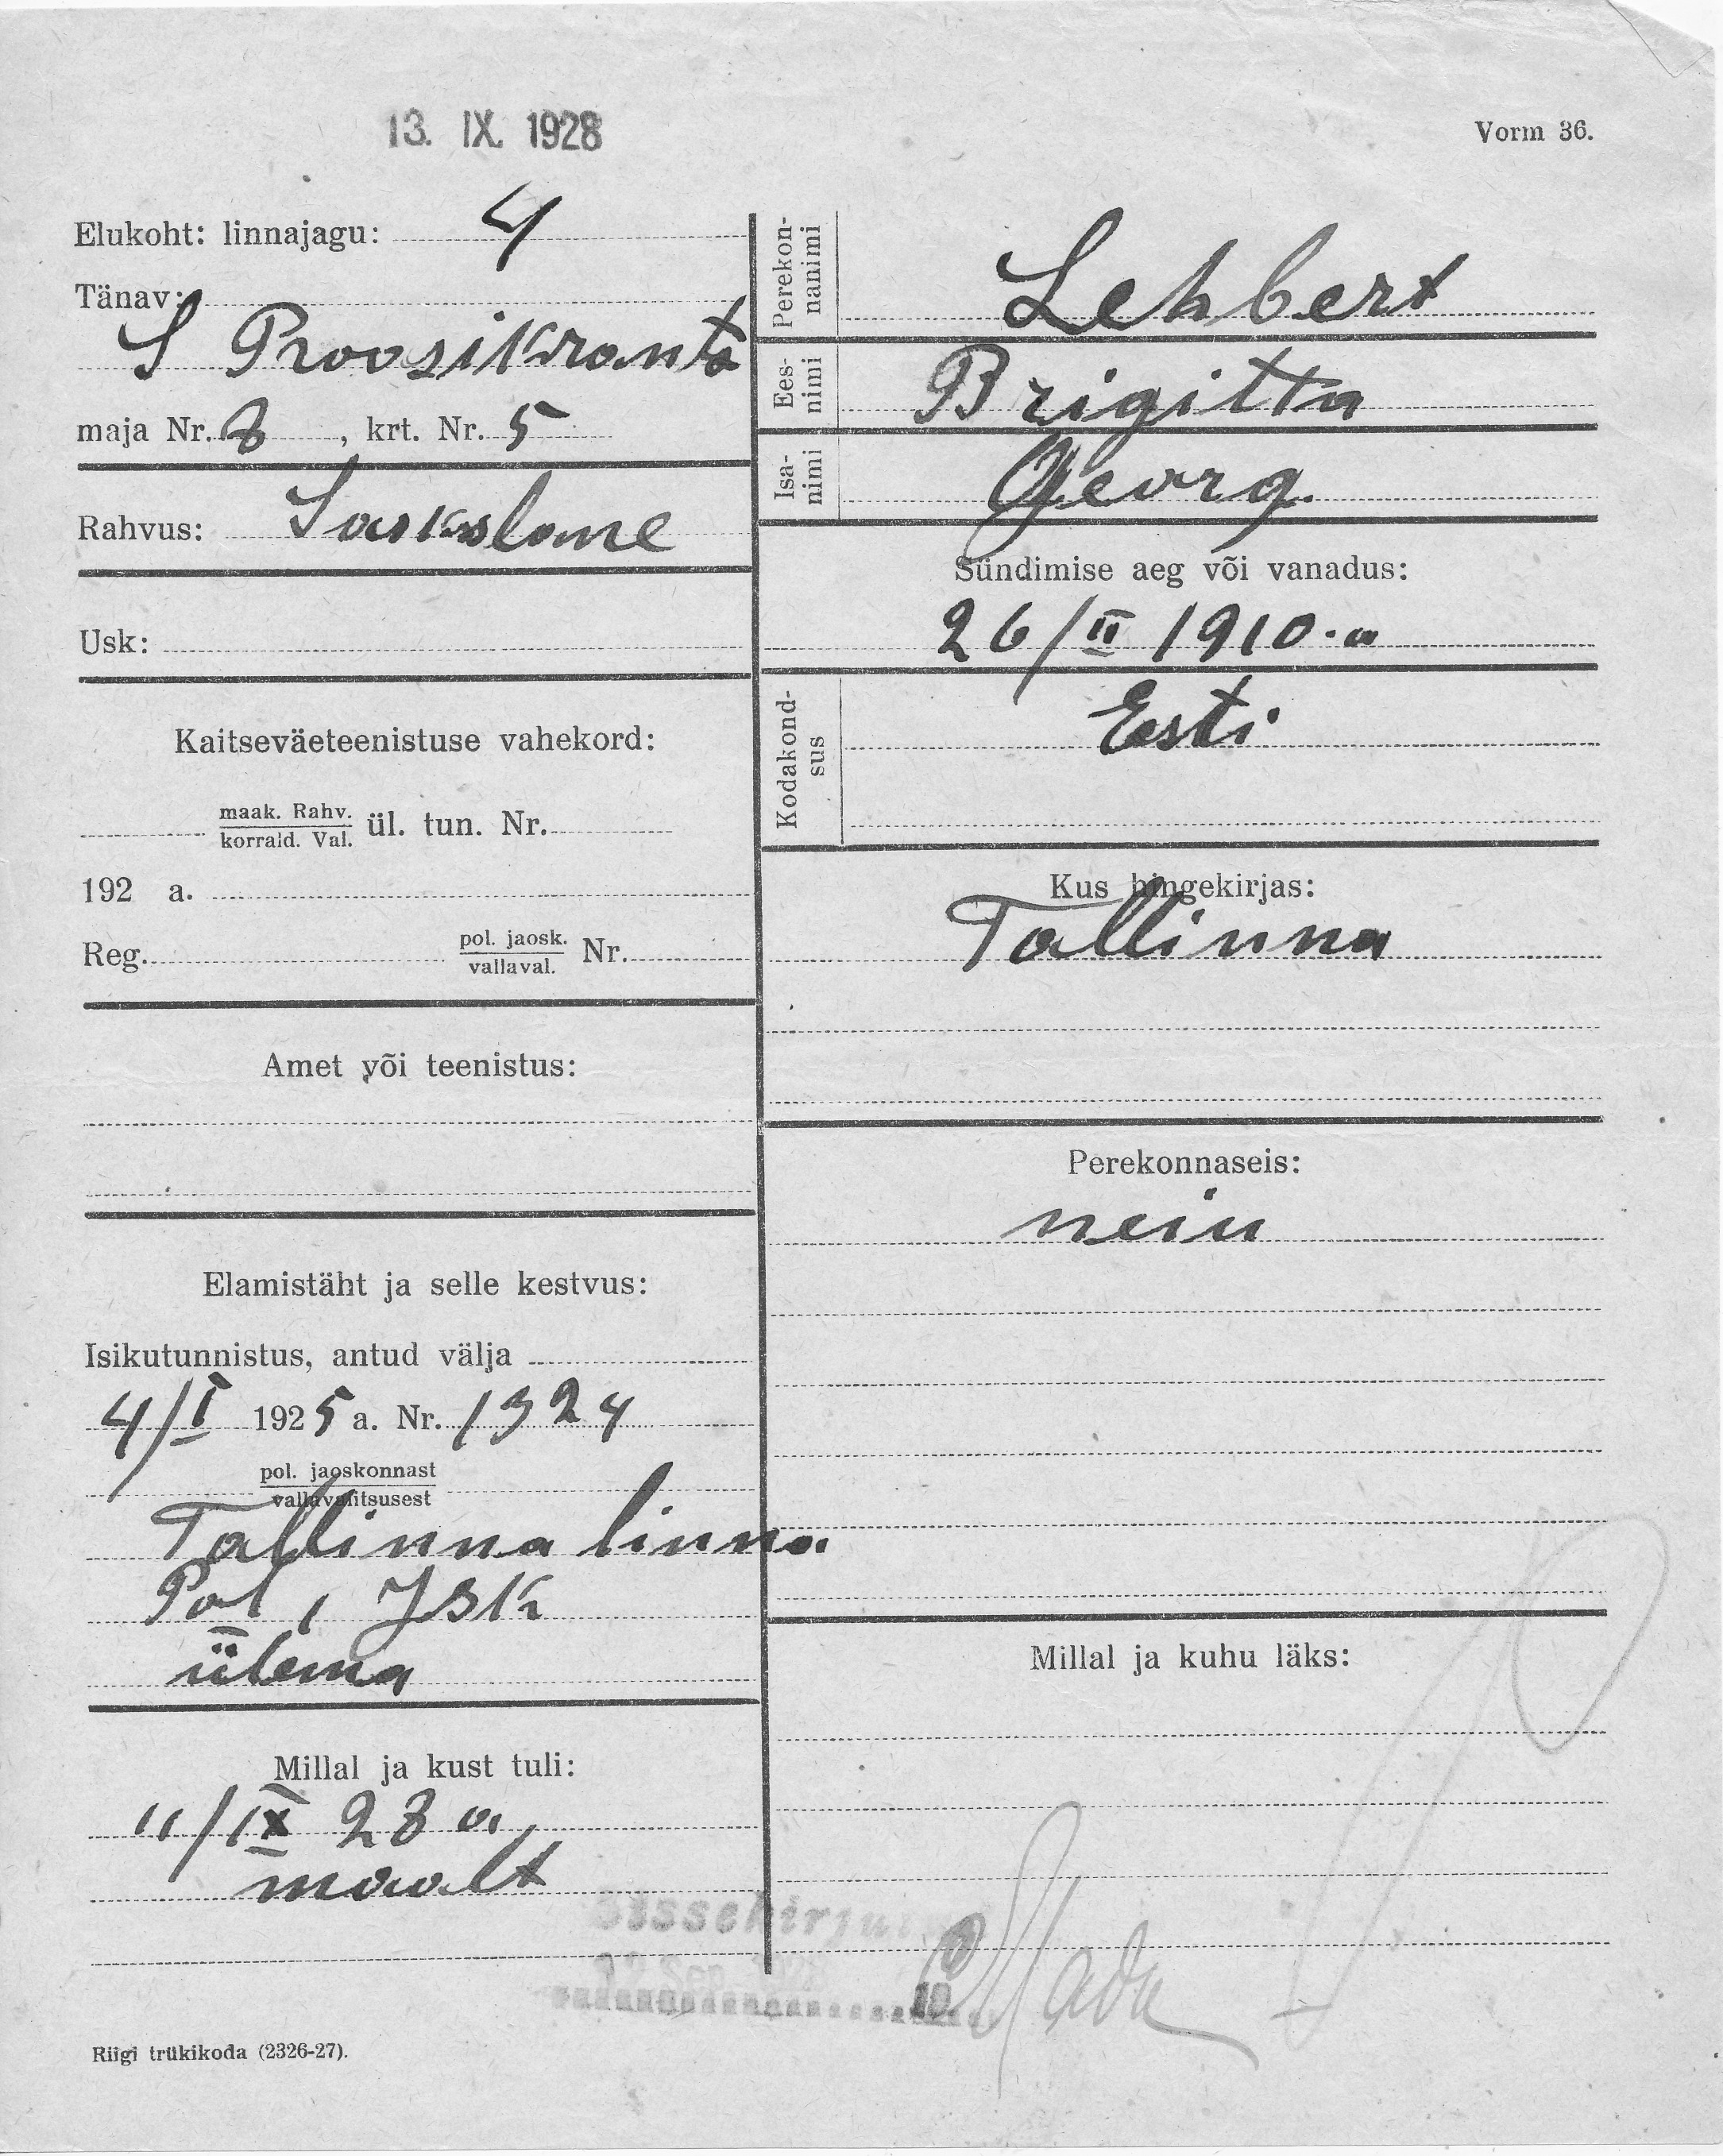 13. IX. 1928
Vorm 36.
Elukoht: linnajagu: 4
Tänav:
S Roosikrantsi
maja Nr. 8, krt. Nr. 5
Rahvus: Sakslane
Usk:
Kaitseväeteenistuse vahekord:
maak. Rahv.
korrald. Val. ül. tun. Nr.
192 a.
Reg. pol. jaosk.
vallaval. Nr.
Amet või teenistus:
Elamistäht ja selle kestvus:
Isikutunnistus, antud välja
4/I 1925 a. Nr. 1324
pol. jaoskonnast
vallavalitsusest
Tallinna linna
Pol, JSK
ülema
Millal ja kust tuli:
11/IX 28 a.
maalt
Riigi trükikoda (2326-27).
Perekon-
nanimi
Lehbert
Ees-
nimi
Brigitta
Isa-
nimi
Georg.
Sündimise aeg või vanadus:
26/II 1910.a
Kodakond-
sus
Eesti
Kus hingekirjas:
Tallinna
Perekonnaseis:
neiu
Millal ja kuhu läks: